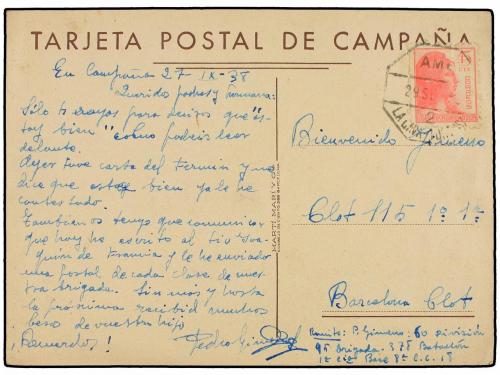 TARJETA POSTAL DE CAMPAÑA
En Campaña 27 IX-38
Queridos padres y hermana:
Sólo 4 rayas para deciros que es-
toy bien como podeis leer
delante.
Ayer tuve carta del Fermin y me
dice que está bien ya le he
contestado.
Tambien os tengo que comunicar
que hoy he escrito al tio Joa-
quin de Francia y le he enviado
una postal de cada clase de nues-
tra brigada. Sin mas y hasta
la próxima recibid muchos
besos de vuestro hijo
¡Recuerdos! Pedro Gimeno
MARTÍ, MARÍ Y
AM
29 SE
2
Bienvenido Gimeno
Clot 115 1º 1ª
Barcelona Clot
Remite: P. Gimeno: 60 División
95 Brigada. 378 Batallón
1ª cia Base 8ª C.C. 18